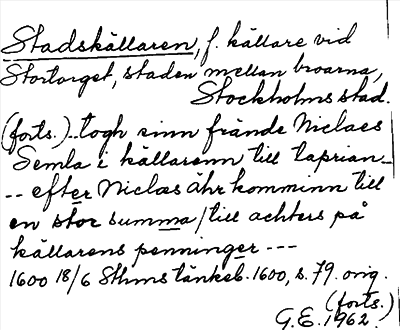 Stadskällaren, f. källare vid
Stortorget, staden mellan broarna,
Stockholms stad.
(forts.).. togh sinn frände Niclaes
Semla i källarenn till taprian --
-- efter Niclas ähr komminn till
en stor summa / till achters på
källarens penninger ---
1600 18/6 Sthms tänkeb. 1600, s. 79. orig.
(forts.)
G.E. 1962.